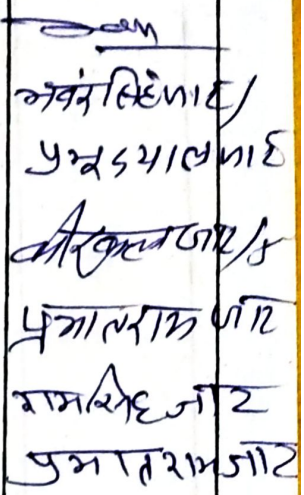 भवंर सिंह जाट/
प्रभूदयाल जाट
जाट/
प्रभातराम जाट
रामसिंह जाट
प्रभातराम जाट